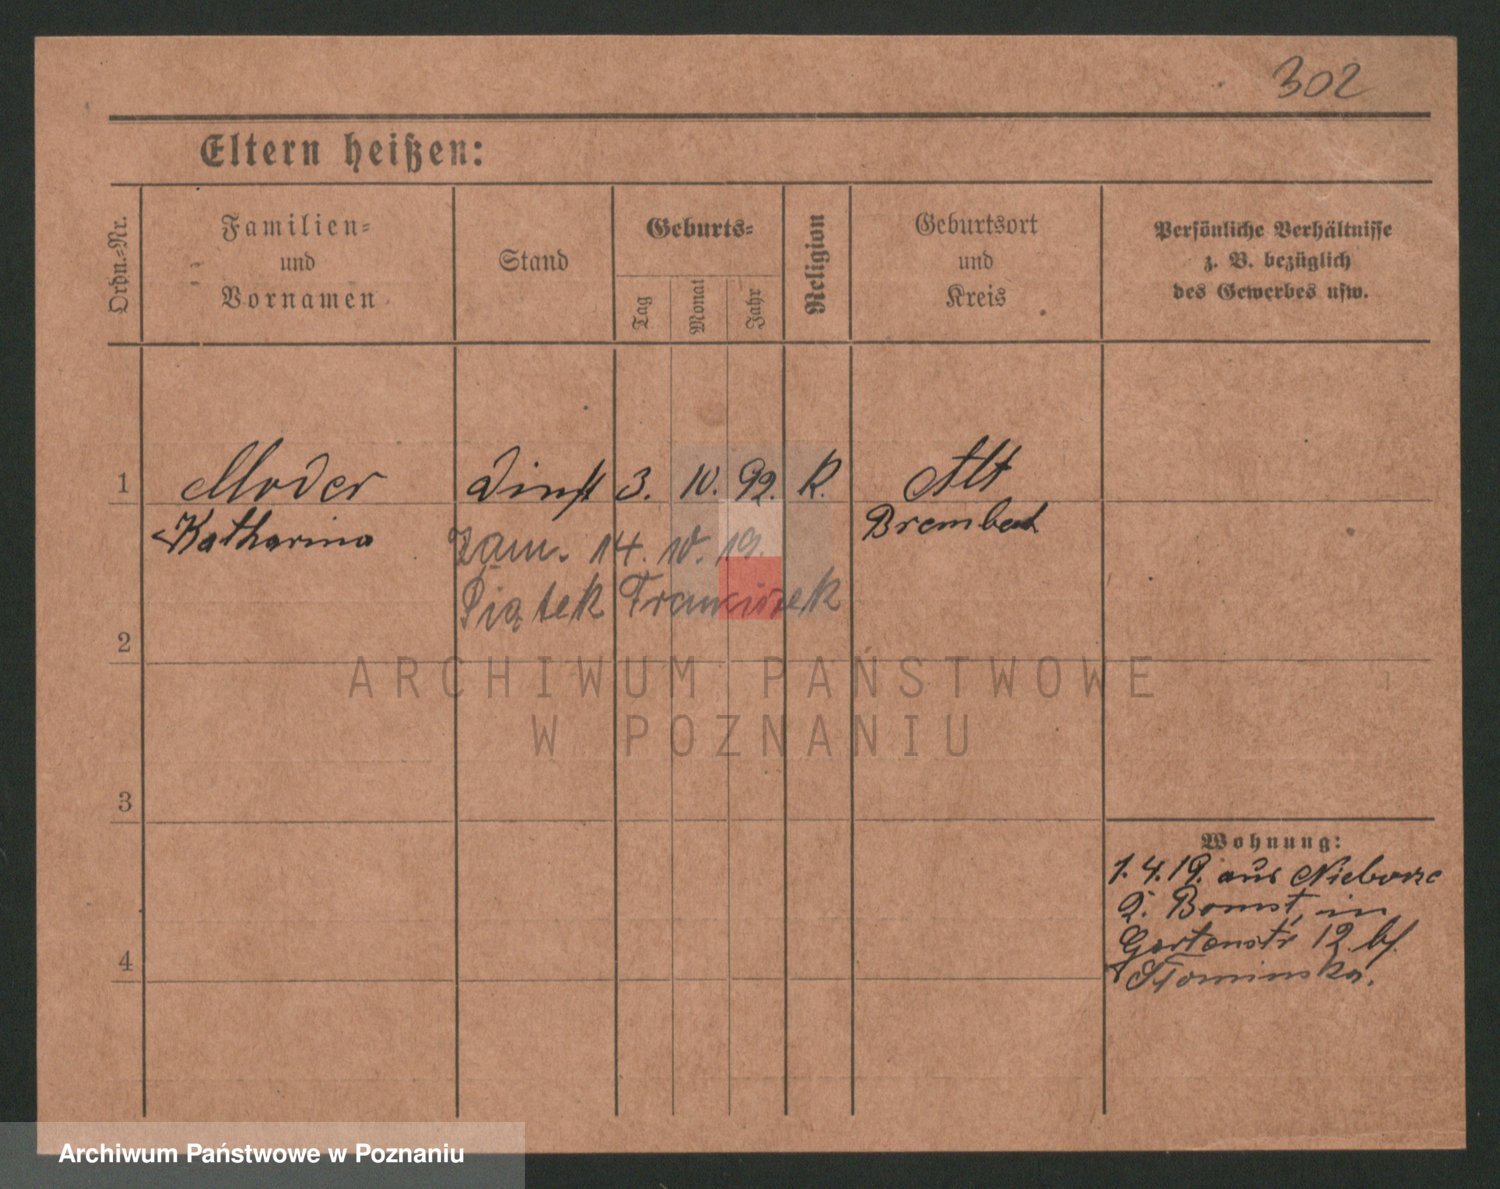 302
Eltern heißen:
Ordn.-Nr.
Familien-
und
Vornamen
Stand
Geburts-
Tag
Monat
Jahr
Religion
Geburtsort
und
Kreis
Persönliche Verhältnisse
z. B. bezüglich
des Gewerbes usw.
1
Moder
Dinst
3.
10.
92.
K.
Alt
Katharina
Brembach
zam. 14. 10. 19.
Piątek Franciszek
2
ARCHIWUM PAŃSTWOWE
W POZNANIU
3
Wohnung:
1. 4. 19. aus
Bomst, in
Gartenstr 12. bf.
Słominska.
4
Archiwum Państwowe w Poznaniu